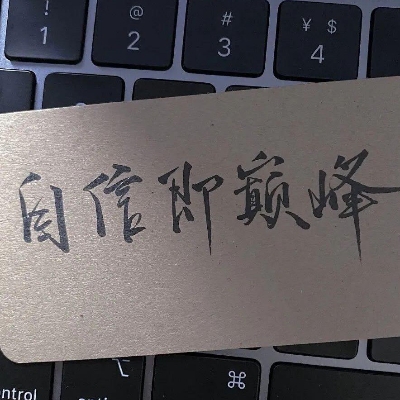 ! @ # ¥ $
1 2 3 4
自信即巅峰
⌥ ⌘
control option